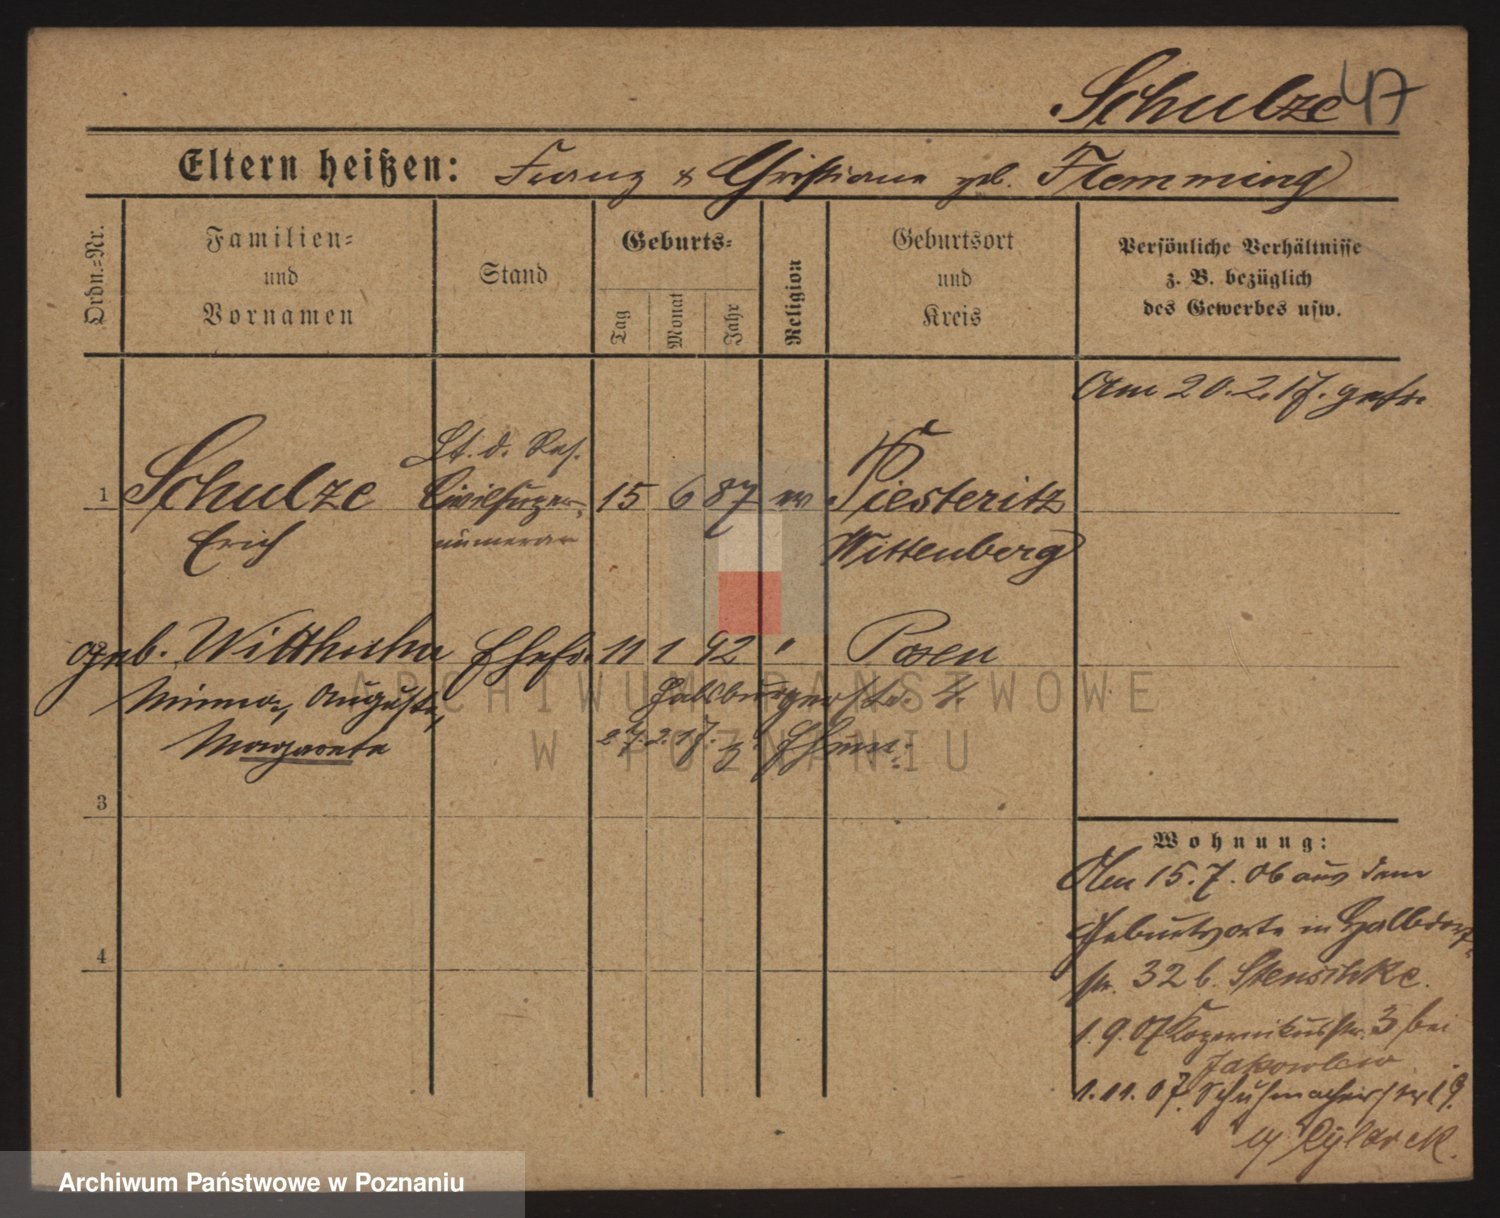 Schulze 47
Eltern heißen: Franz & Christiane geb. Flemming
Ordn.-Nr.
Familien-
und
Vornamen
Stand
Geburts-
Tag
Monat
Jahr
Religion
Geburtsort
und
Kreis
Persönliche Verhältnisse
z. B. bezüglich
des Gewerbes usw.
Am 20.2.17.
1 Schulze
Erich
Lt. d. Res.
Civilsuper-
numerar
15 6 87 ev
Piesteritz
Wittenberg
2 geb. Witthuhn
Minna, Auguste,
Margarete
Ehefr. 11 1 92 " Posen
Habsburgerstr. 4.
27.2.17. z. Ehem.
3
4
Wohnung:
Am 15.7.06 aus dem
Geburtsorte in Halbdorf-
str. 32 b. Stenschke.
1.9.07 Kopernikusstr. 3 bei
Jakowlew
1.11.07. Schuhmacherstr 19.
ARCHIWUM PAŃSTWOWE
W POZNANIU
Archiwum Państwowe w Poznaniu